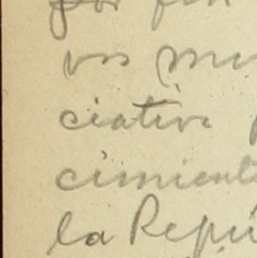 por fin
vos mu
ciativa
cimient
la Repú